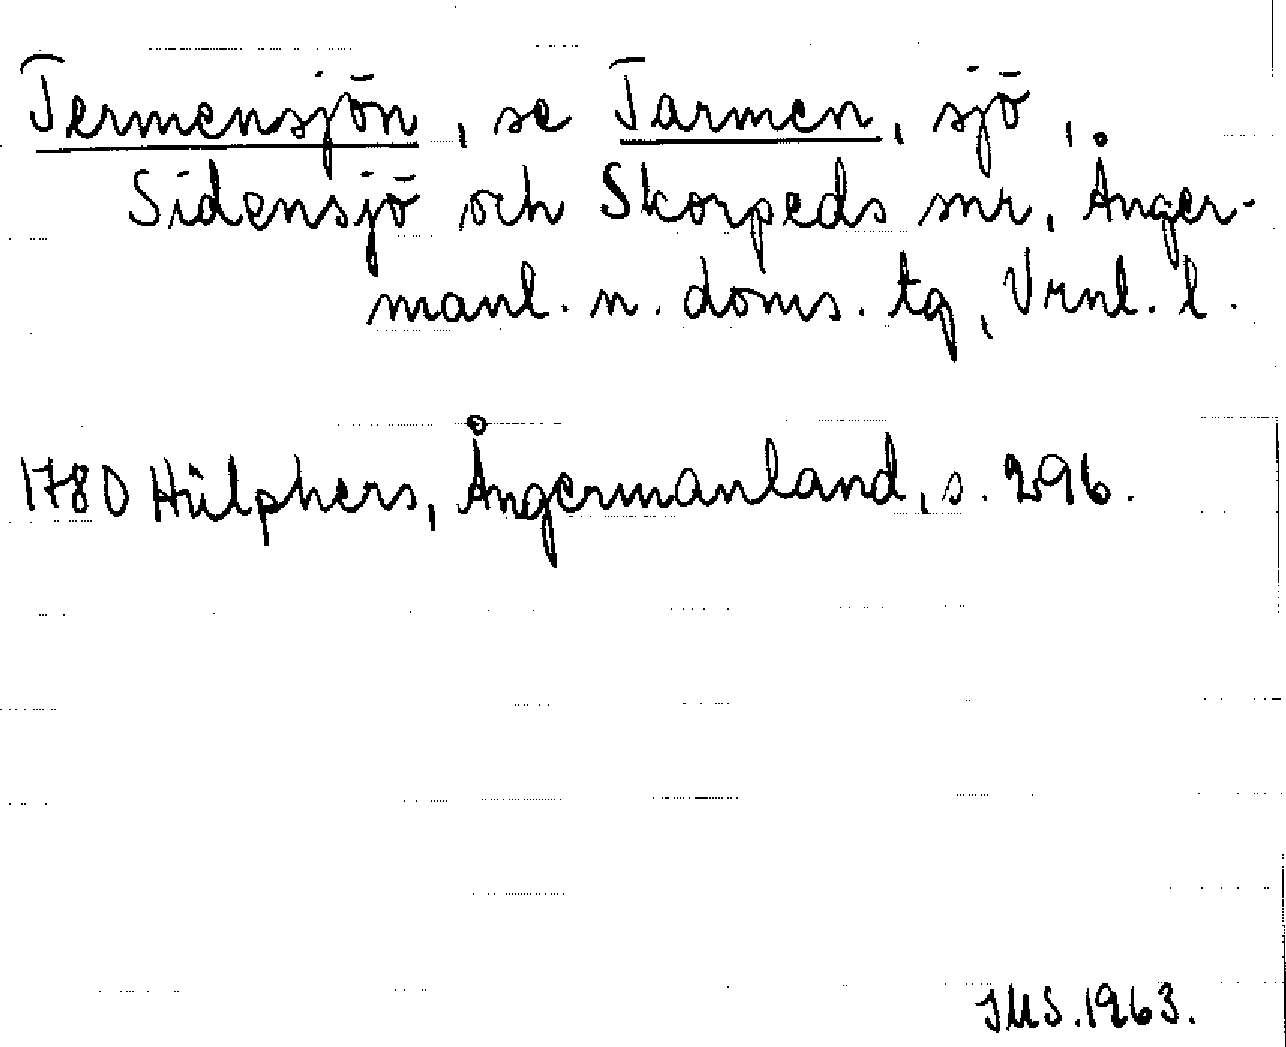 Termensjön, se Tarmen, sjö,
Sidensjö och Skorpeds snr, Ånger-
manl. n. doms. tg, Vrnl. l.
1780 Hülphers, Ångermanland, s. 296.
JMS. 1963.